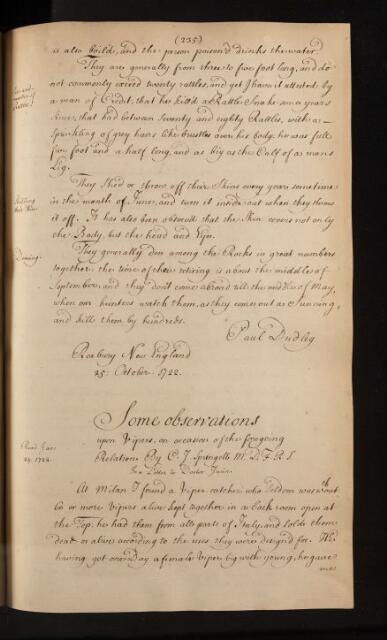 (235)
is also boild, and the person poison'd drinks the water.
They are generally from three to five foot long, and do
not commonly exceed twenty rattles, and yet I have it attested by
a man of Credit, that he killd a Rattle Snake some years
since, that had between Seventy and eighty Rattles, with a
Sprinkling of grey hairs like bristles over his body: he was full
five foot and a half long, and as big as the Calf of a mans
Leg.
Shedding
their Skins
They Shed or throw off their Skins every year sometime
in the month of June, and turn it inside out when they throw
it off. It has also been observed that the Skin covers not only
the Body, but the head and Eyes.
Denning.
They generally den among the Rocks in great numbers
together: the time of their retiring is about the middle of
September, and they dont come abroad till the middle of May,
when our hunters watch them, as they come out a Sunning,
and kill them by hundreds.
Paul Dudley
Roxbury New England
25: October: 1722.
Some observations
upon Vipers, on occasion of the foregoing
Relation. By C. J. Sprengell M. D. F. R. S.
In a Letter to Doctor Jurin
24. 1722.
At Milan I found a Viper catcher who Seldom was without
60 or more Vipers alive kept together in a back room open at
the Top: he had them from all parts of Italy, and Solds them
dead or alive according to the uses they were design'd for. He
having got one Day a female Viper big with young, he gave
me